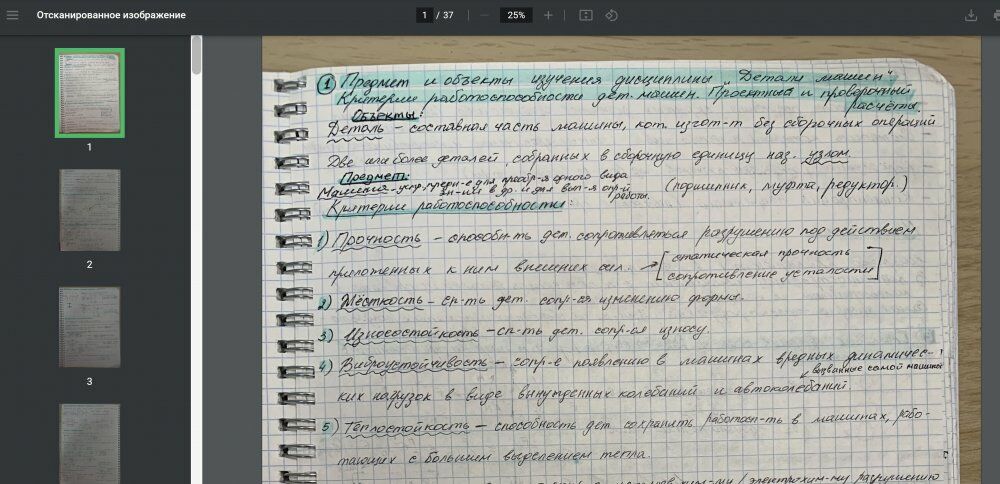 Отсканированное изображение
1 / 37
25%
1
2
3
① Предмет и объекты изучения дисциплины "Детали машин".
Критерии работоспособности дет. машин. Проектный и проверочный
расчёты.
Объекты:
Деталь – составная часть машины, кот. изгот-т без сборочных операций
Две или более деталей, собранных в сборочную единицу наз. узлом.
Предмет:
Машина - устр. для преобр-я одного вида
эн-ии в др. и для вып-я опр-й
работы.
(подшипник, муфта, редуктор.)
Критерии работоспособности:
1) Прочность – способн-ть дет. сопротивляться разрушению под действием
приложенных к ним внешних сил. → [статическая прочность
сопротивление усталости]
2) Жёсткость – сп-ть дет. сопр-ся изменению формы.
3) Износостойкость – сп-ть дет. сопр-ся износу.
4) Виброустойчивость – сопр-е появлению в машинах вредных динамичес-
вызванные самой машиной
ких нагрузок в виде вынужденных колебаний и автоколебаний
5) Теплостойкость – способность дет. сохранять работосп-ть в машинах, рабо-
тающих с большим выделением тепла.